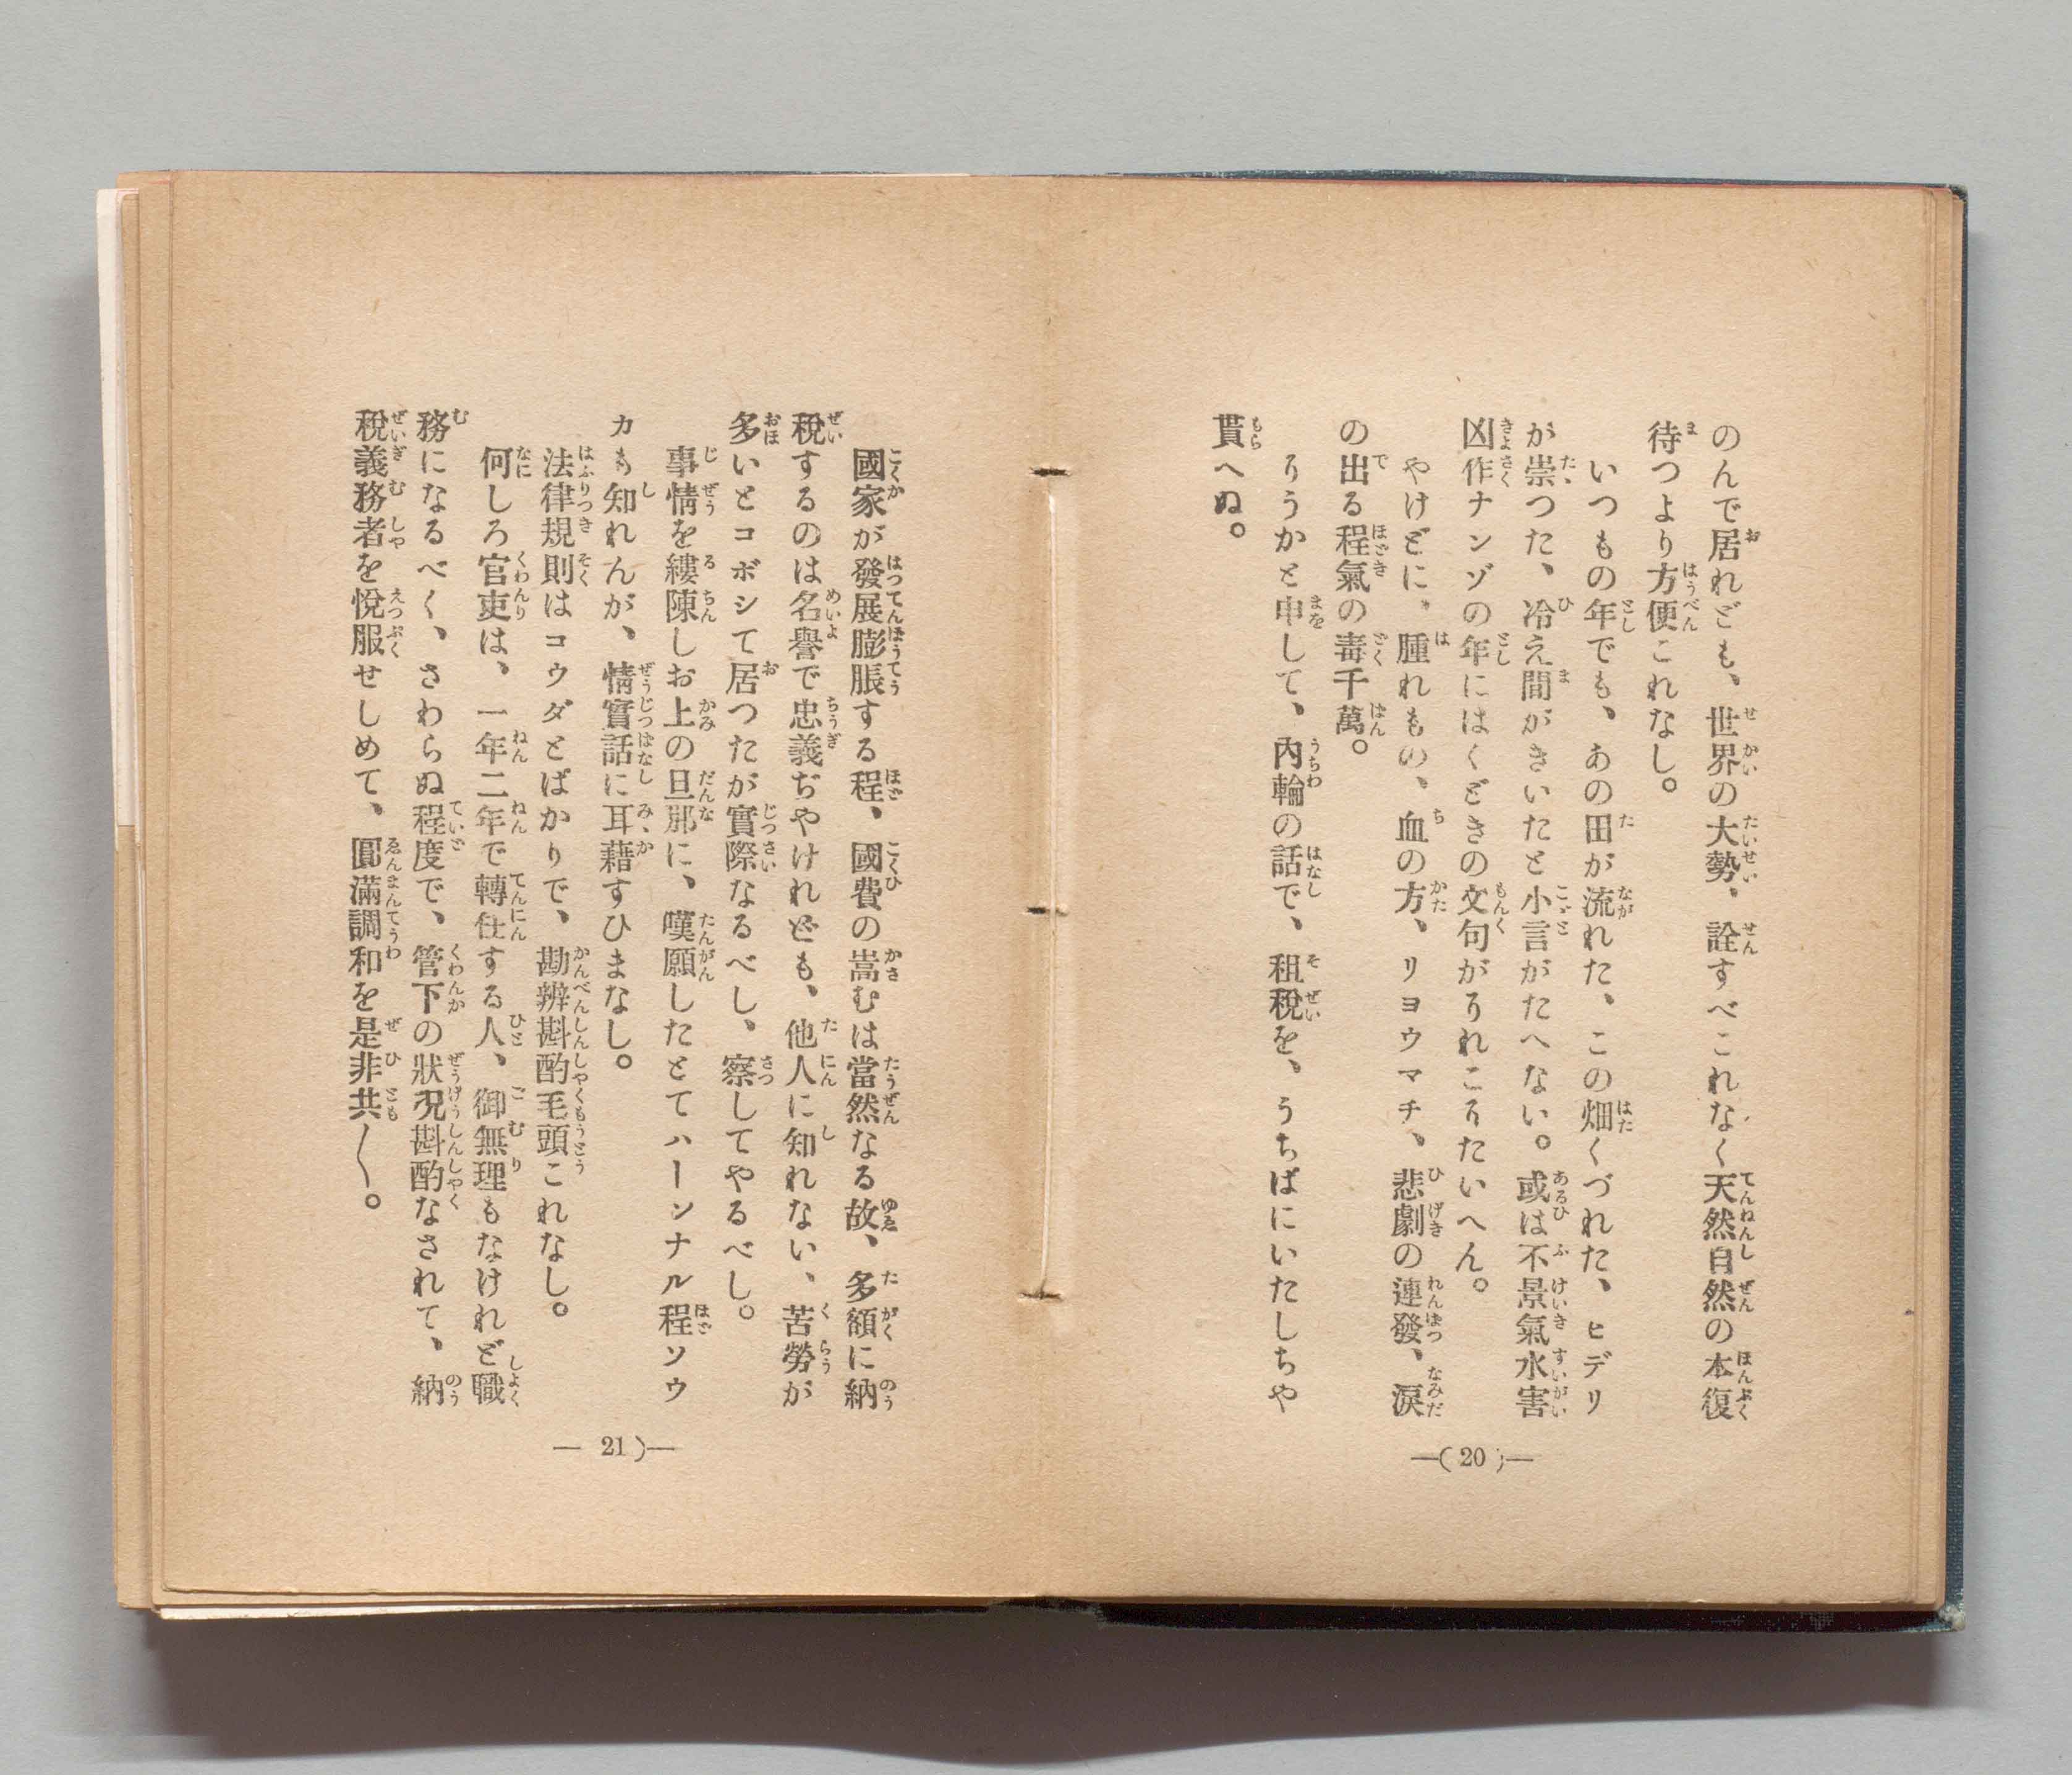 のんで居れども、世界の大勢、詮すべこれなく天然自然の本復
待つより方便これなし。
いつもの年でも、あの田が流れた、この畑くづれた、ヒデリ
が祟つた、冷え間がきいたと小言がたへない。或は不景氣水害
凶作ナンゾの年にはくどきの文句がうれこうたいへん。
やけどに、腫れもの、血の方、リヨウマチ、悲劇の連發、淚
の出る程氣の毒千萬。
うかと申して、內輪の話で、租稅を、うちばにいたしちや
貰へぬ。
—(20)—
國家が發展膨脹する程、國費の嵩むは當然なる故、多額に納
稅するのは名譽で忠義ぢやけれども、他人に知れない、苦勞が
多いとコボシて居つたが實際なるべし、察してやるべし。
事情を縷陳しお上の旦那に、嘆願したとてハーンナル程ソウ
カも知れんが、情實話に耳藉すひまなし。
法律規則はコウダとばかりで、勘辨斟酌毛頭これなし。
何しろ官吏は、一年二年で轉任する人、御無理もなけれど職
務になるべく、さわらぬ程度で、管下の狀況斟酌なされて、納
稅義務者を悅服せしめて、圓滿調和を是非共〱。
— 21)—